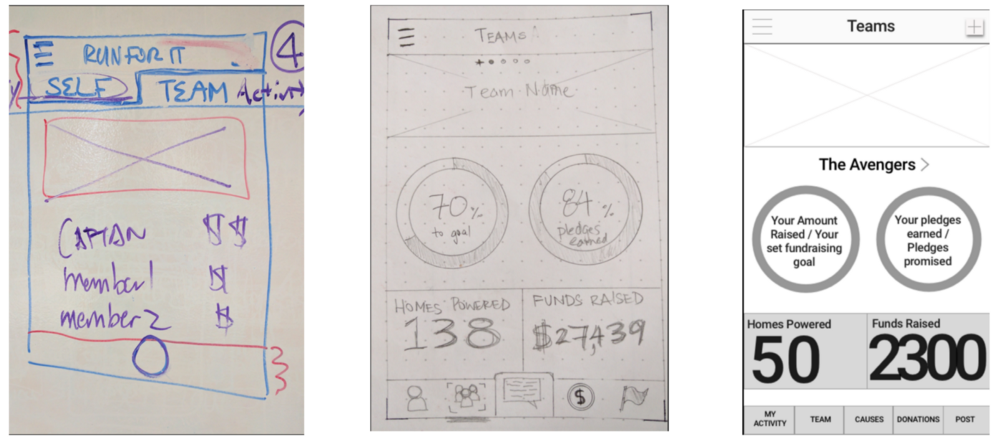 RUN FOR IT
4
SELF TEAM Activity
CAPTAIN $$
member 1 $
member 2 $
3
TEAMS
Team Name
70 % to goal
84 % pledges earned
HOMES POWERED
138
FUNDS RAISED
$27,439
$
Teams
The Avengers
Your Amount
Raised / Your
set fundraising
goal
Your pledges
earned /
Pledges
promised
Homes Powered
50
Funds Raised
2300
MY
ACTIVITY
TEAM
CAUSES
DONATIONS
POST